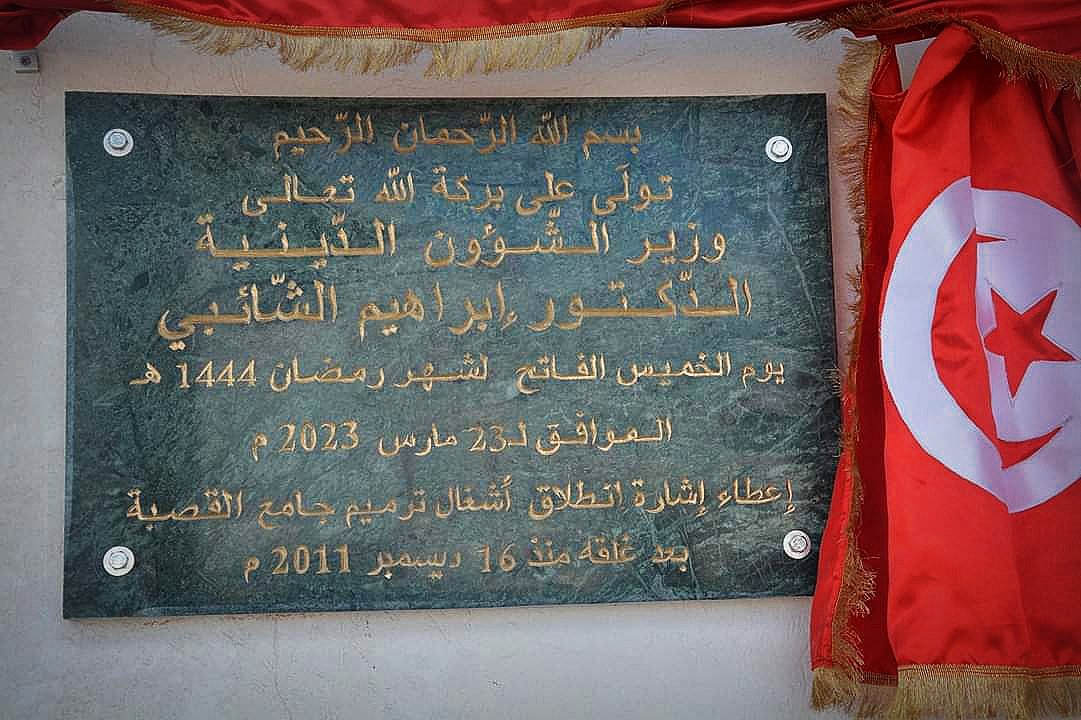 بسم الله الرّحمان الرّحيم
تولَى على بركة الله تعالى
وزير الشّؤون الدّينية
الدّكتور إبراهيم الشّائبي
يوم الخميس الفاتح لشهر رمضان 1444 هـ
الموافق لـ23 مارس 2023 م
إعطاء إشارة انطلاق أشغال ترميم جامع القصبة
بعد غلقه منذ 16 ديسمبر 2011 م